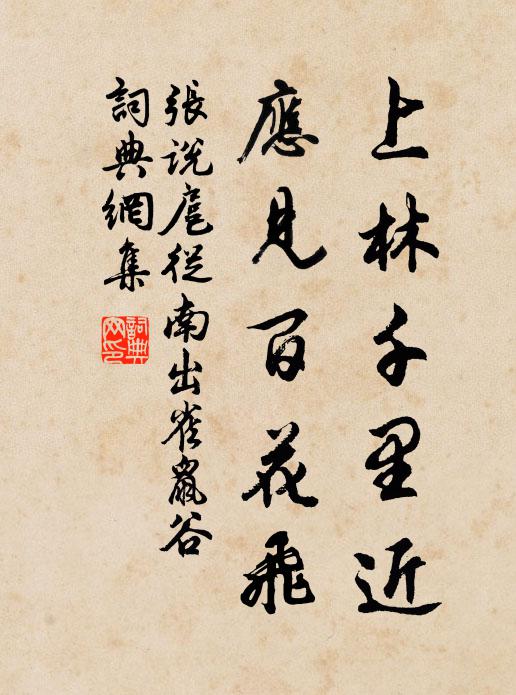 上林千里近
應見百花飛
張說扈從南出雀鼠谷
詞典網集
詞典
网印